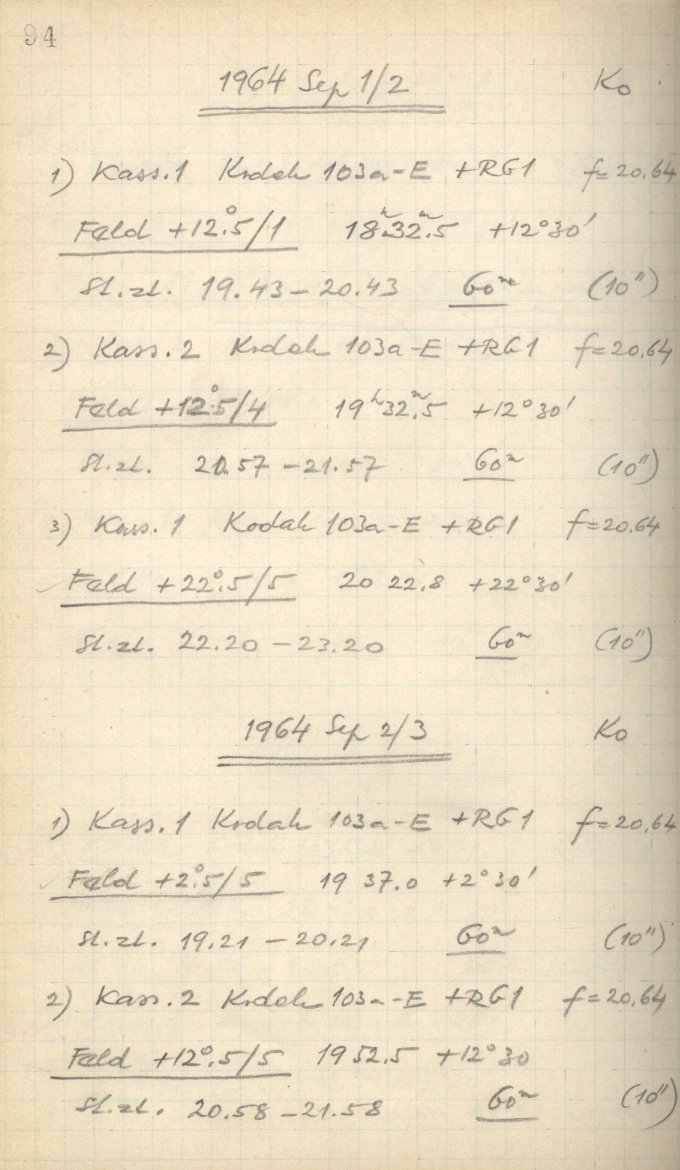 94
1964 Sep 1/2 Ko
1) Kass. 1 Kodak 103a-E +RG1 f=20,64
Feld +12°.5/1 18ʰ32ᵐ.5 +12°30'
St.zt. 19.43 – 20.43 60ᵐ (10")
2) Kass. 2 Kodak 103a-E +RG1 f=20,64
Feld +12°.5/4 19ʰ32ᵐ.5 +12°30'
St.zt. 20.57 – 21.57 60ᵐ (10")
3) Kass. 1 Kodak 103a-E +RG1 f=20,64
Feld +22°.5/5 20 22,8 +22°30'
St.zt. 22.20 – 23.20 60ᵐ (10")
1964 Sep 2/3 Ko
1) Kass. 1 Kodak 103a-E +RG1 f=20,64
Feld +2°.5/5 19 37.0 +2°30'
St.zt. 19.21 – 20.21 60ᵐ (10")
2) Kass. 2 Kodak 103a-E +RG1 f=20,64
Feld +12°.5/5 19 52.5 +12°30
St.zt. 20.58 – 21.58 60ᵐ (10")